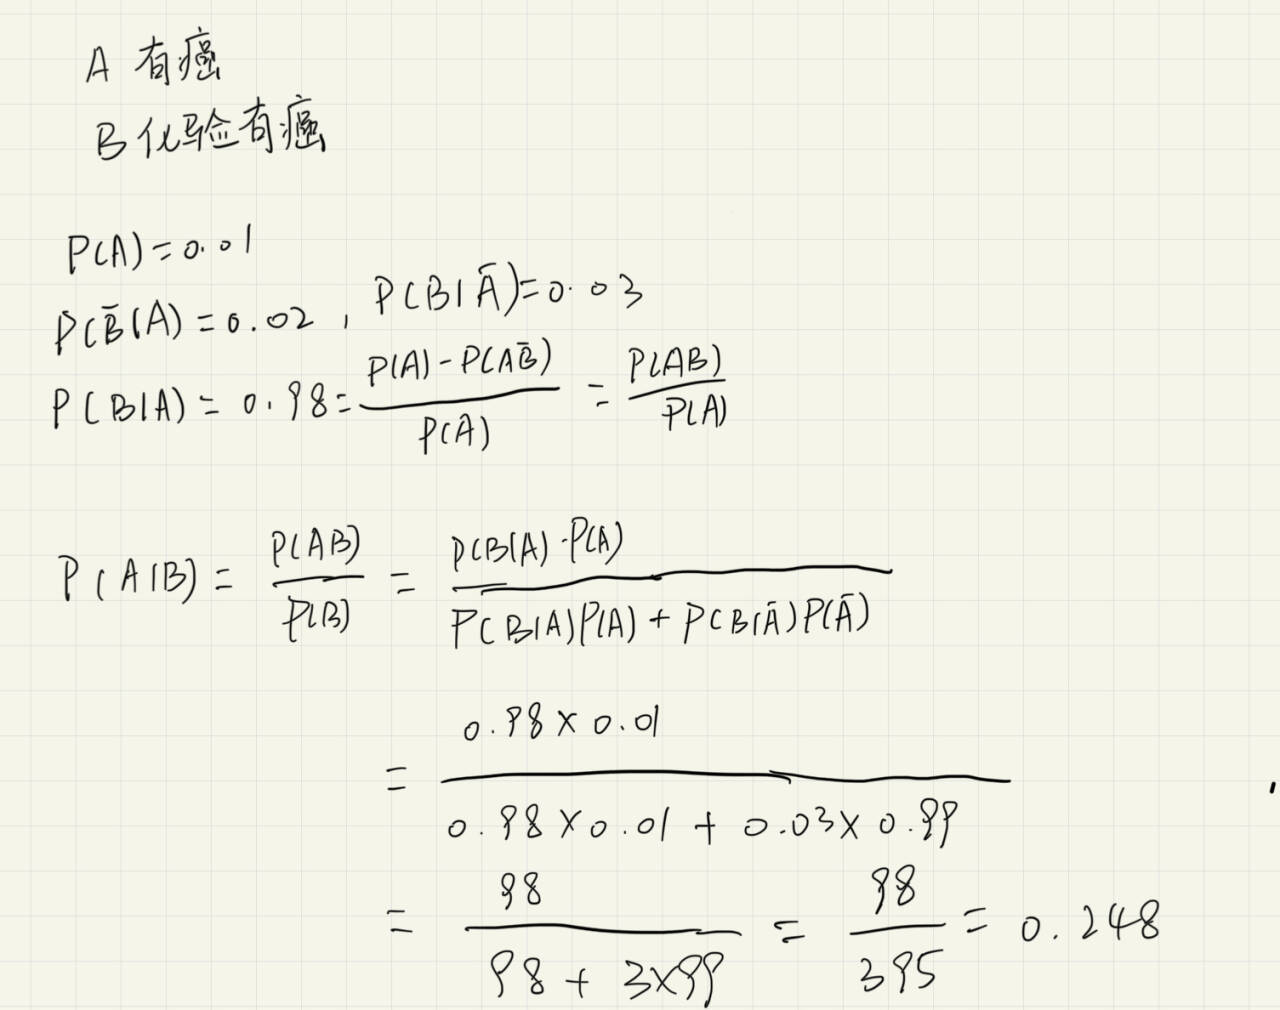 A 有癌
B 化验有癌
P(A)=0.01
P(B̄|A)=0.02, P(B|Ā)=0.03
P(B|A)=0.98=\frac{P(A)-P(AB̄)}{P(A)}=\frac{P(AB)}{P(A)}
P(A|B)=\frac{P(AB)}{P(B)}=\frac{P(B|A)·P(A)}{P(B|A)P(A)+P(B|Ā)P(Ā)}
=\frac{0.98×0.01}{0.98×0.01+0.03×0.99}
=\frac{98}{98+3×99}=\frac{98}{395}=0.248